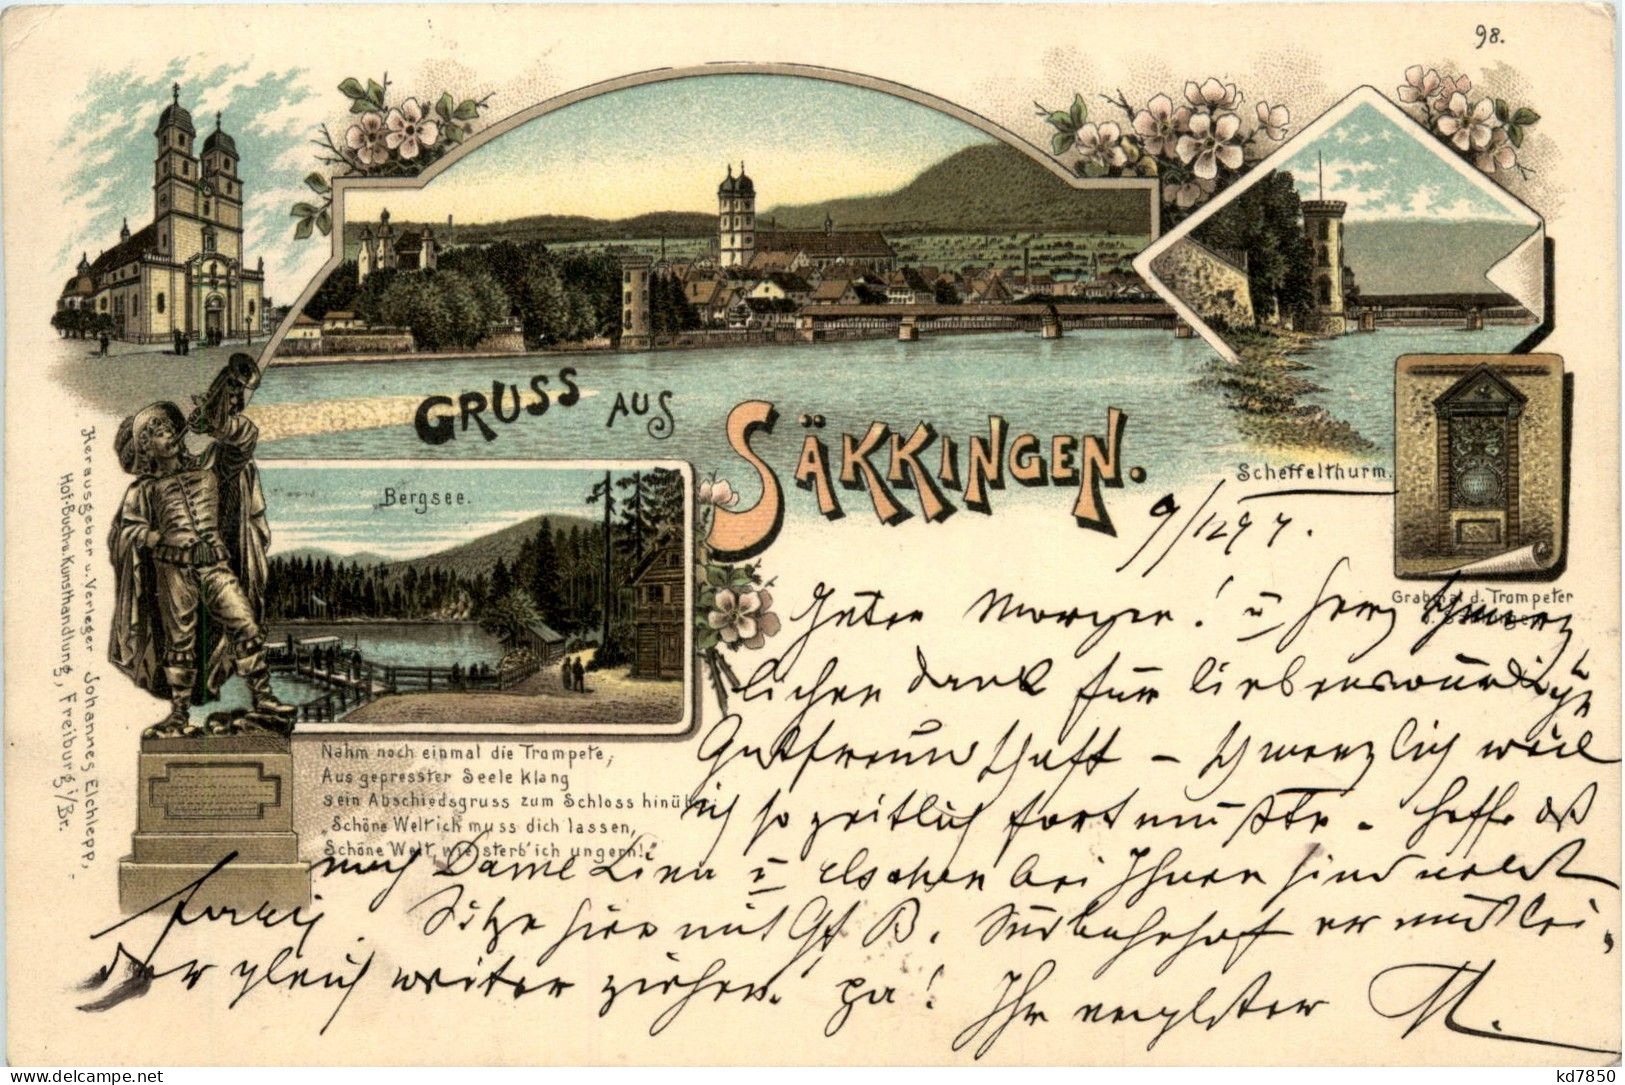 98.
GRUSS AUS
SÄKKINGEN.
Bergsee.
Scheffelthurm.
Grabmal d. Trompeter
Herausgeber u. Verleger Johannes Elchlepp,
Hof-Buch u. Kunsthandlung, Freiburg i/Br.
Nahm noch einmal die Trompete,
Aus gepresster Seele klang
sein Abschiedsgruss zum Schloss hinüb
„Schöne Welt ich muss dich lassen,
Schöne Welt, wie sterb' ich ungern!"
9/12 97.
Guten Morgen! u herz
lichen Dank für liebenswürdige
Gastfreundschaft – schmerzlich weil
ich so zeitlich fort mußte. hoffe daß
noch Dame u bei Ihnen sind
Sitze hier mit Gf B. Südbahnhof er muß lei
der gleich weiter ziehen! pa! Ihr
kd7850
delcampe.net